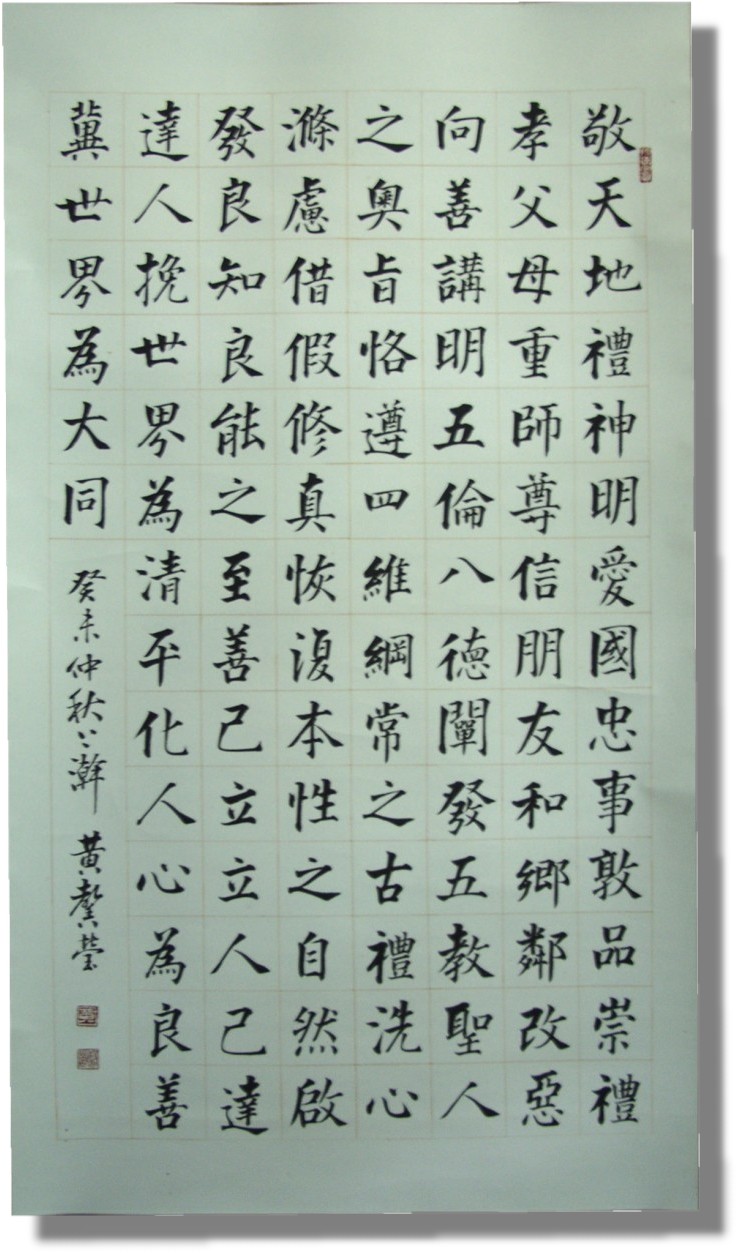 敬天地禮神明愛國忠事敦品崇禮
孝父母重師尊信朋友和鄉鄰改惡
向善講明五倫八德闡發五教聖人
之奧旨恪遵四維綱常之古禮洗心
滌慮借假修真恢復本性之自然啟
發良知良能之至善己立立人己達
達人挽世界為清平化人心為良善
冀世界為大同
癸未仲秋 黃馨瑩